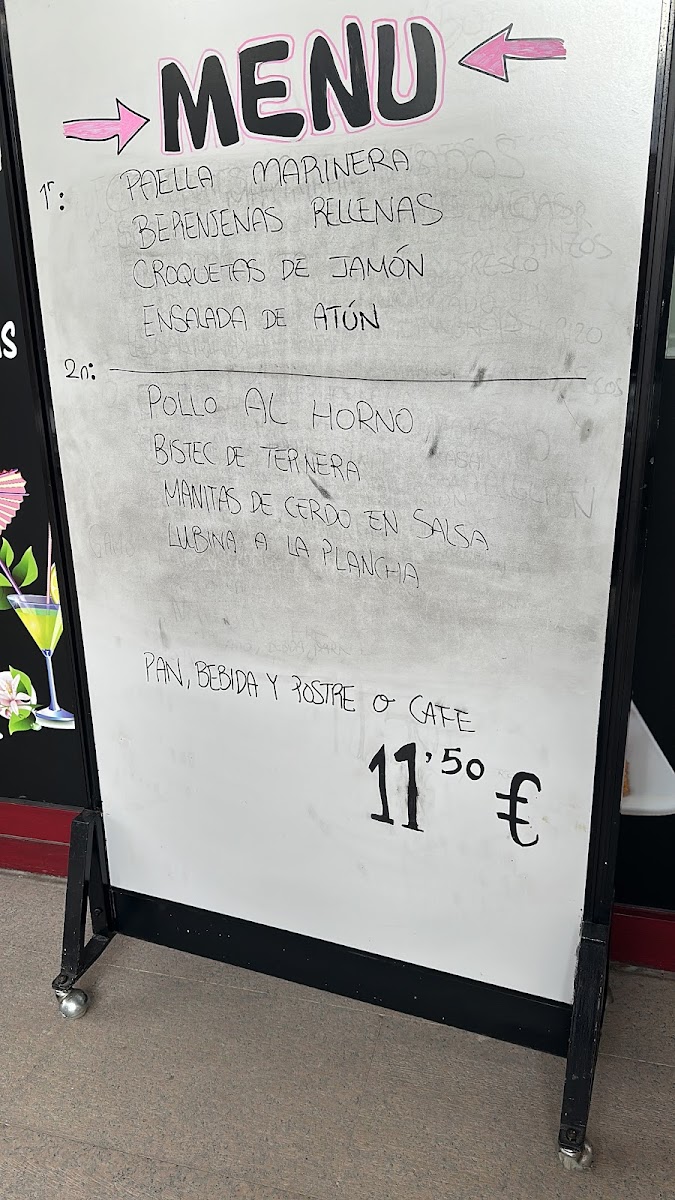 MENU
1r:
PAELLA MARINERA
BERENJENAS RELLENAS
CROQUETAS DE JAMÓN
ENSALADA DE ATÚN
2n:
POLLO AL HORNO
BISTEC DE TERNERA
MANITAS DE CERDO EN SALSA
LUBINA A LA PLANCHA
PAN, BEBIDA Y POSTRE O CAFE
11,50 €